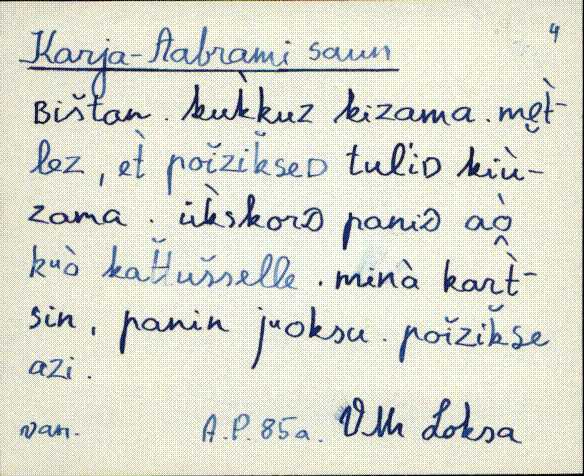 4
Karja-Aabrami saun
Bištan. kuk̀kuz kizama. mĕt̀-
lez, et̀ poĭzik̆seD tuliD kiù-
zama. ük̀skorD paniD aò
kᵘò kat̆t̆ušselle. minà kart̀-
sin, panin jᵘoksu. poĭzik̆se
azi.
van. A.P. 85a. VMr Loksa